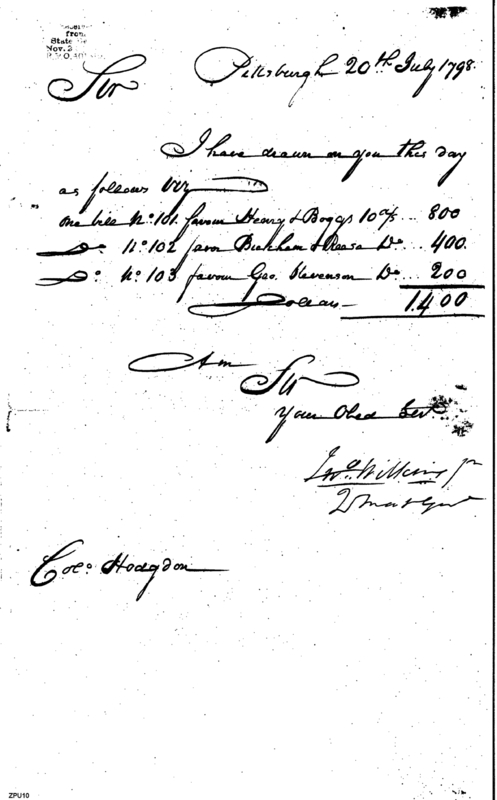 from
State
Nov. 2
Pittsburgh 20th July 1798.
Sir
I have drawn on you this day
as follows Viz
One bill No. 101. favour Henry & Boggs 10 d/s ... 800
Do. No. 102 favor Beckham & Reesa Do ... 400.
Do. No. 103 favour Geo. Stevenson Do ... 200
Dolears 1.400
Am
Sir
Your Obed Serv.
Jno. Wilkins Jr
Qr Mas Genl
Colo. Hodgdon
ZPU10